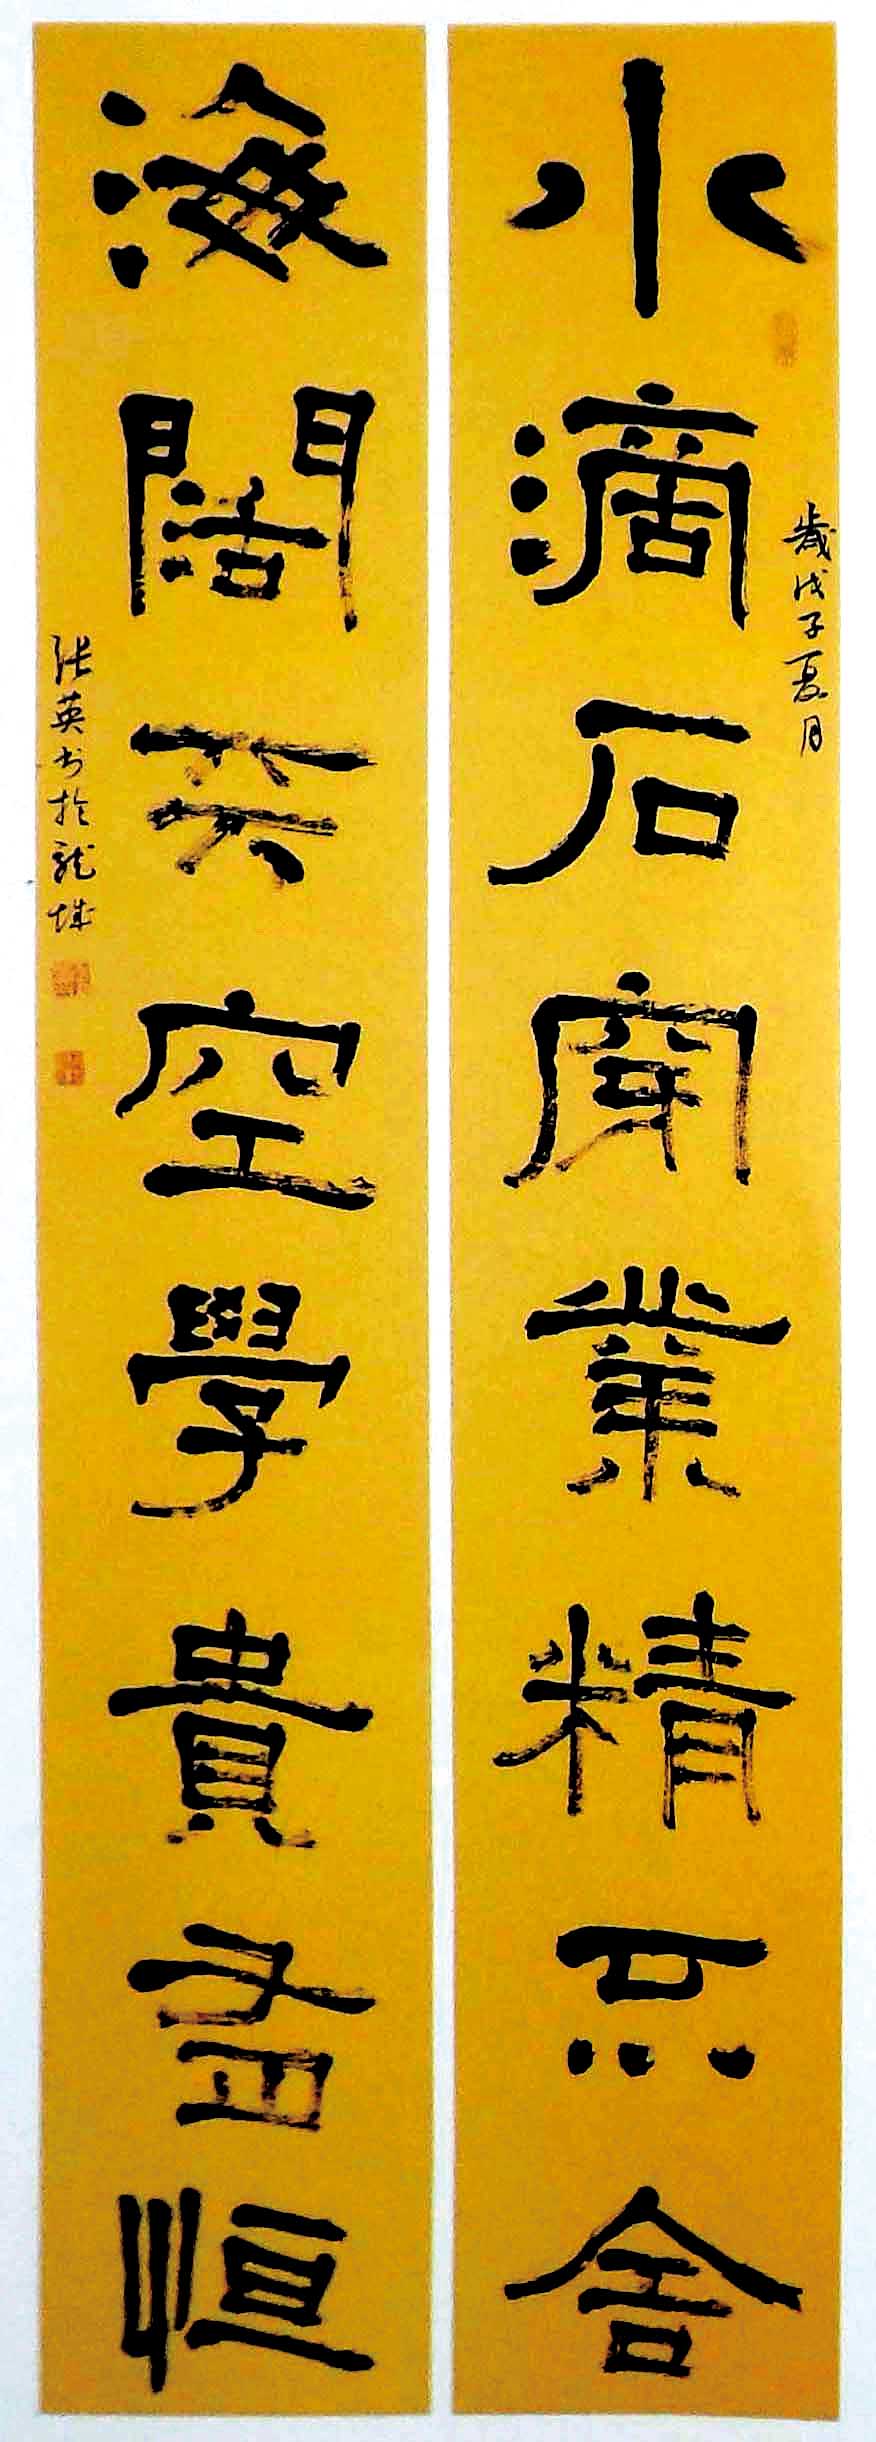 水滴石穿業精不舍
歲戊子夏月
海闊天空學貴有恒
張英書於龍城